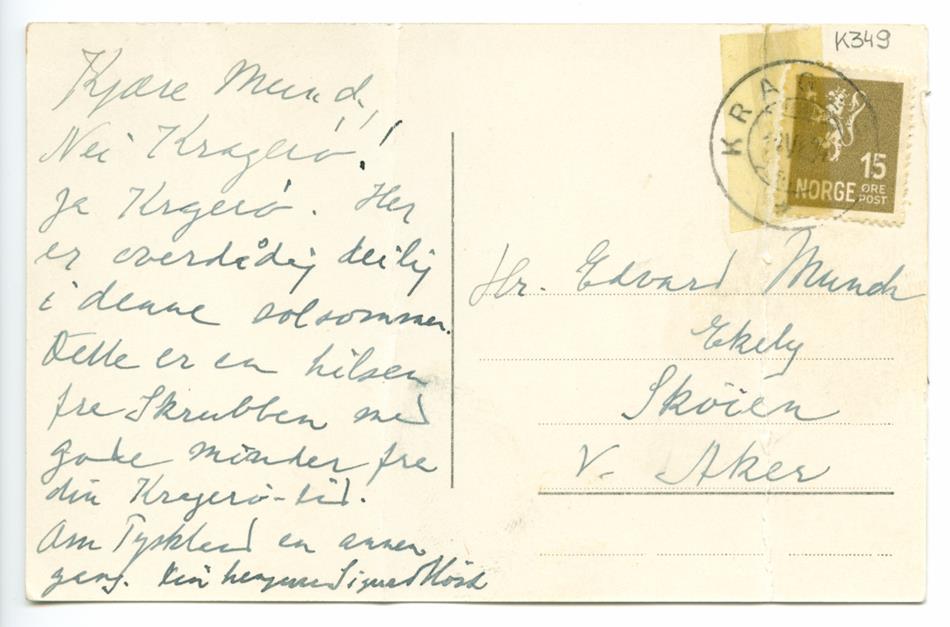 Kjære Munch,
Nei Kragerö!
Ja Kragerö. Her
er overdådig deilig
i denne solsommer.
Dette er en hilsen
fra Skrubben med
gode minder fra
din Kragerö-tid.
Om Tyskland en annen
gang. Din hengivne Sigurd Höst
K349
KRAG
15
NORGE ØRE
POST
Hr. Edvard Munch
Ekely
Sköien
V. Aker